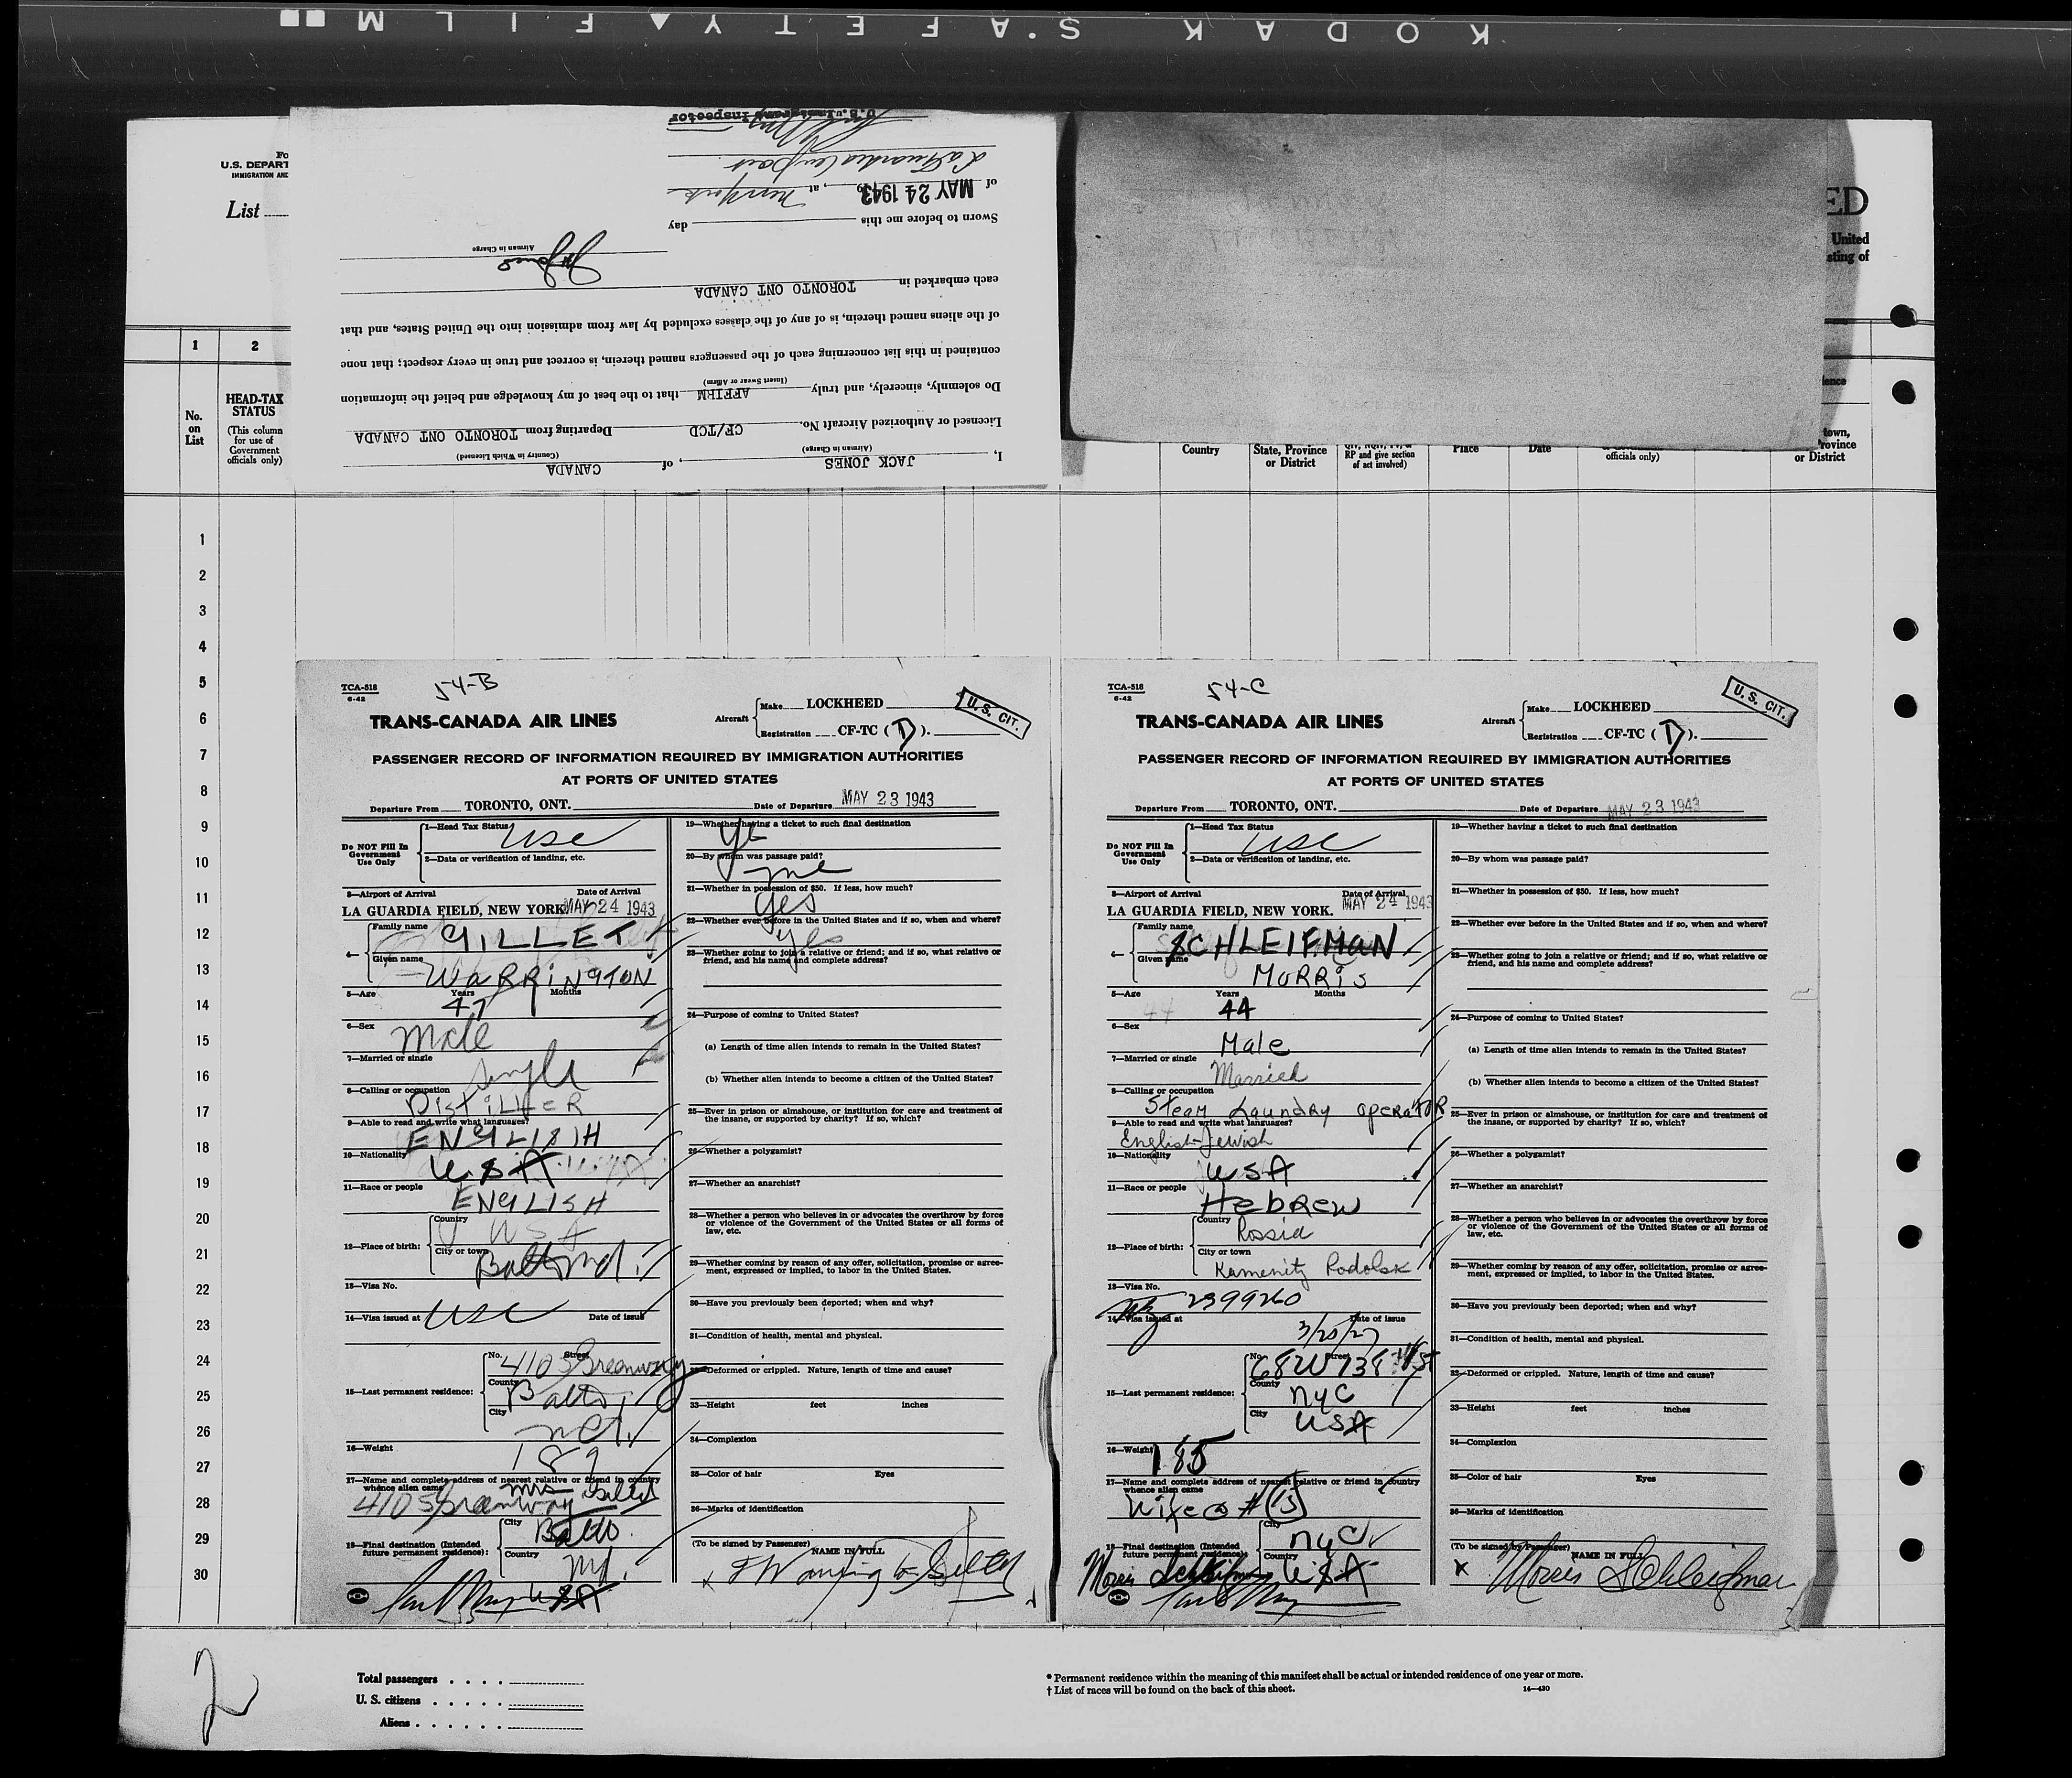 KODAK SAFETY FILM
U.S. DEPART
IMMIGRATION AND
List
ED
United
sting of
1 2
No. on List
HEAD-TAX STATUS
(This column for use of Government officials only)
Country
State, Province or District
RP and give section of act involved)
Place
Date
officials only)
town,
Province
or District
I, JACK JONES, of CANADA
(Airman in Charge) (Country in Which Licensed)
Licensed or Authorized Aircraft No. CF/TCD Departing from TORONTO ONT CANADA
Do solemnly, sincerely, and truly AFFIRM that to the best of my knowledge and belief the information
(Insert Swear or Affirm)
contained in this list concerning each of the passengers named therein, is correct and true in every respect; that none
of the aliens named therein, is of any of the classes excluded by law from admission into the United States, and that
each embarked in TORONTO ONT CANADA
J Jones
Airman in Charge
Sworn to before me this day
of MAY 24 1943, at New York
La Guardia Airport
U.S. Immigrant Inspector
1
2
3
4
5
6
7
8
9
10
11
12
13
14
15
16
17
18
19
20
21
22
23
24
25
26
27
28
29
30
TCA-518
6-42
54-B
TRANS-CANADA AIR LINES
Aircraft
Make LOCKHEED
Registration CF-TC (D).
U.S. CIT.
PASSENGER RECORD OF INFORMATION REQUIRED BY IMMIGRATION AUTHORITIES
AT PORTS OF UNITED STATES
Departure From TORONTO, ONT. Date of Departure MAY 23 1943
Do NOT Fill In Government Use Only
1—Head Tax Status USC
2—Data or verification of landing, etc.
3—Airport of Arrival Date of Arrival
LA GUARDIA FIELD, NEW YORK. MAY 24 1943
4—
Family name GILLET
Given name WARRINGTON
5—Age Years Months
47
6—Sex Male
7—Married or single Single
8—Calling or occupation
DISTILLER
9—Able to read and write what languages?
ENGLISH
10—Nationality U.S.A
11—Race or people
ENGLISH
12—Place of birth:
Country USA
City or town Balto Md.
13—Visa No.
14—Visa issued at USC Date of issue
15—Last permanent residence:
No. Street 4105 Greenway
County Balto
City Md.
16—Weight 189
17—Name and complete address of nearest relative or friend in country
whence alien came Mrs Gillet
4105 Greenway
18—Final destination (Intended future permanent residence):
City Balto.
Country Md.
USA
19—Whether having a ticket to such final destination
Yes
20—By whom was passage paid?
me
21—Whether in possession of $50. If less, how much?
Yes
22—Whether ever before in the United States and if so, when and where?
Yes
23—Whether going to join a relative or friend; and if so, what relative or
friend, and his name and complete address?
24—Purpose of coming to United States?
(a) Length of time alien intends to remain in the United States?
(b) Whether alien intends to become a citizen of the United States?
25—Ever in prison or almshouse, or institution for care and treatment of
the insane, or supported by charity? If so, which?
26—Whether a polygamist?
27—Whether an anarchist?
28—Whether a person who believes in or advocates the overthrow by force
or violence of the Government of the United States or all forms of
law, etc.
29—Whether coming by reason of any offer, solicitation, promise or agree-
ment, expressed or implied, to labor in the United States.
30—Have you previously been deported; when and why?
31—Condition of health, mental and physical.
32—Deformed or crippled. Nature, length of time and cause?
33—Height feet inches
34—Complexion
35—Color of hair Eyes
36—Marks of identification
(To be signed by Passenger) NAME IN FULL
x F Warrington Gillet
TCA-518
6-42
54-C
TRANS-CANADA AIR LINES
Aircraft
Make LOCKHEED
Registration CF-TC (D).
U.S. CIT.
PASSENGER RECORD OF INFORMATION REQUIRED BY IMMIGRATION AUTHORITIES
AT PORTS OF UNITED STATES
Departure From TORONTO, ONT. Date of Departure MAY 23 1943
Do NOT Fill In Government Use Only
1—Head Tax Status USC
2—Data or verification of landing, etc.
3—Airport of Arrival Date of Arrival
LA GUARDIA FIELD, NEW YORK. MAY 24 1943
4—
Family name SCHLEIFMAN
Given name MORRIS
5—Age Years Months
44 44
6—Sex Male
7—Married or single Married
8—Calling or occupation
Steam Laundry operator
9—Able to read and write what languages?
English-Jewish
10—Nationality USA
11—Race or people
Hebrew
12—Place of birth:
Country Rossia
City or town Kamenitz Podolsk
13—Visa No.
2399260
14—Visa issued at Date of issue
3/20/27
15—Last permanent residence:
No. Street 68 W 138th St
County NYC
City USA
16—Weight 185
17—Name and complete address of nearest relative or friend in country
whence alien came
Wife @ # (15)
18—Final destination (Intended future permanent residence):
City NYC
Country USA
Morris Schleifman
19—Whether having a ticket to such final destination
20—By whom was passage paid?
21—Whether in possession of $50. If less, how much?
22—Whether ever before in the United States and if so, when and where?
23—Whether going to join a relative or friend; and if so, what relative or
friend, and his name and complete address?
24—Purpose of coming to United States?
(a) Length of time alien intends to remain in the United States?
(b) Whether alien intends to become a citizen of the United States?
25—Ever in prison or almshouse, or institution for care and treatment of
the insane, or supported by charity? If so, which?
26—Whether a polygamist?
27—Whether an anarchist?
28—Whether a person who believes in or advocates the overthrow by force
or violence of the Government of the United States or all forms of
law, etc.
29—Whether coming by reason of any offer, solicitation, promise or agree-
ment, expressed or implied, to labor in the United States.
30—Have you previously been deported; when and why?
31—Condition of health, mental and physical.
32—Deformed or crippled. Nature, length of time and cause?
33—Height feet inches
34—Complexion
35—Color of hair Eyes
36—Marks of identification
(To be signed by Passenger) NAME IN FULL
x Morris Schleifman
2
Total passengers
U. S. citizens
Aliens
* Permanent residence within the meaning of this manifest shall be actual or intended residence of one year or more.
† List of races will be found on the back of this sheet.
14—430